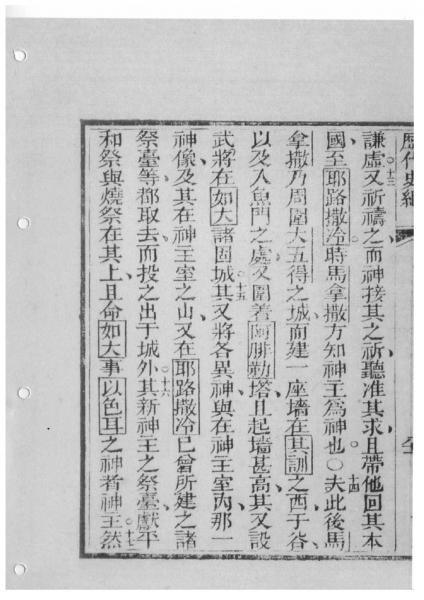 歷代史紀
謙虛又祈禱之而神接其之祈聽准其求且帶他回其本
國至耶路撒冷時馬拿撒方知神王為神也〇夫此後馬
拿撒乃周圍大五得之城而建一座墻在其訓之西于谷
以及入魚門之處又圍着阿腓勒塔且起墻甚高其又設
武將在如大諸固城其又將各異神與在神王室內那一
神像及其在神王室之山又在耶路撒冷已曾所建之諸
祭臺等都取去而投之出于城外其新神王之祭臺獻平
和祭與燒祭在其上且命如大事以色耳之神者神王然